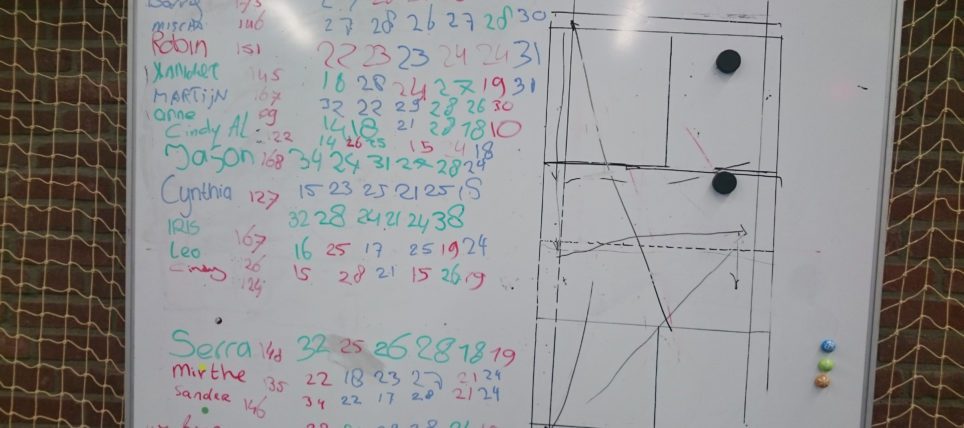 146 27 28 26 27 28 30
Robin 151 22 23 23 24 24 31
145 16 28 24 27 19 31
MARTIJN 167 32 22 29 28 26 30
anne 99 14 18 21 28 18 10
Cindy AL 122 14 26 25 15 14 18
Jason 168 34 24 31 27 28 24
Cynthia 127 15 23 25 21 25 18
IRIS 167 32 28 24 21 24 38
Leo 126 16 25 17 25 19 24
Cindy 124 15 28 21 15 26 19
Serra 148 32 25 26 28 18 19
Mirthe 135 22 18 23 27 21 24
Sander 146 34 22 17 28 21 24